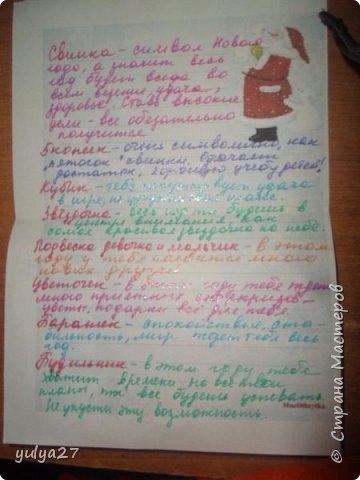 Свинка – символ Нового
года, а значит весь
год будет везде во
всём успех, удача,
здоровье. Ставь высокие
цели – все обязательно
получится
5 копеек – очень символично, как
"пяточок" свинки. Означает
достаток, хорошую учебу детей!
Кубик – тебе удача
в игре, не
Звездочка – весь год ты будешь в
центре внимания, как
самая красивая звездочка на небе.
Подвеска девочка и мальчик – в этом
году у тебя появится много
новых друзей
Цветочек – в этом году тебе
много приятных сюрпризов –
цветы, подарки всё для тебя.
Барашек – спокойствие, ста-
бильность, мир ждет тебя весь
год.
Будильник – в этом году тебе
хватит времени на все твои
планы, ты все будешь успевать.
Не упусти эту возможность.
MneOtkrytka
yulya27
© Страна Мастеров